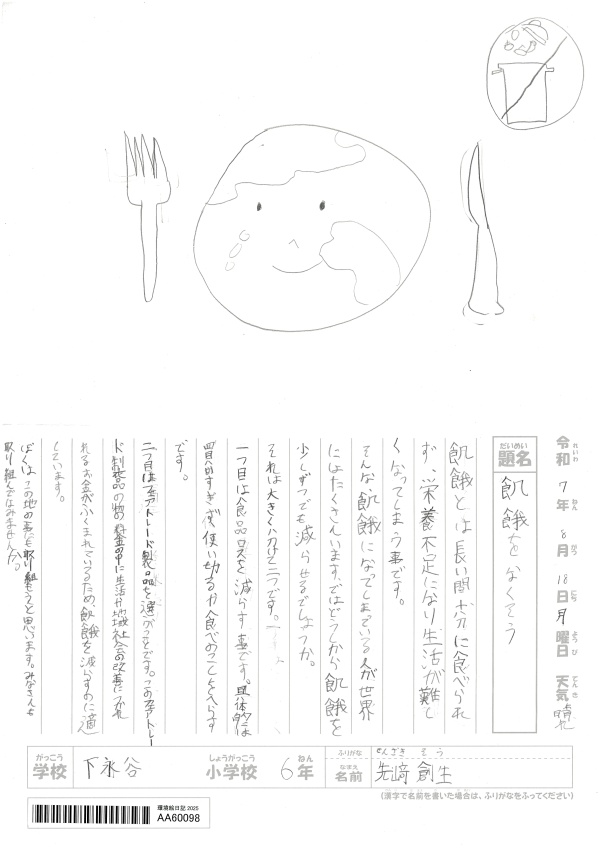 令和7年8月18日月曜日 天気 晴れ
れいわ ねん がつ にち ようび てんき
だいめい
題名 飢餓をなくそう
飢餓とは長い間十分に食べられ
ず、栄養不足になり生活が難し
くなってしまう事です。
そんな、飢餓になってしまている人が世界
にはたくさんいます。ではどうしたら飢餓を
少しずつでも減らせるでしょうか。
それは大きく分けて二つです。
一つ目は食品ロスを減らす事です。具体的には
買いすぎず、使い切るか食べのこしをへらす
です。
二つ目はフェアトレード製品を選ぶことです。このフェアトレー
ド製品の物の料金の中に生活や地域社会の改善につかわ
れるお金がふくまれているため、飢餓を減らすのに適
しています。
ぼくはこの他の事にも取り組もうと思います。みなさんも
取り組んではみませんか。
がっこう
学校 下永谷
しょうがっこう
小学校 6年
ねん
ふりがな せんざき そう
なまえ
名前 先﨑 創生
(漢字で名前を書いた場合は、ふりがなをふってください)
環境絵日記 2025
AA60098